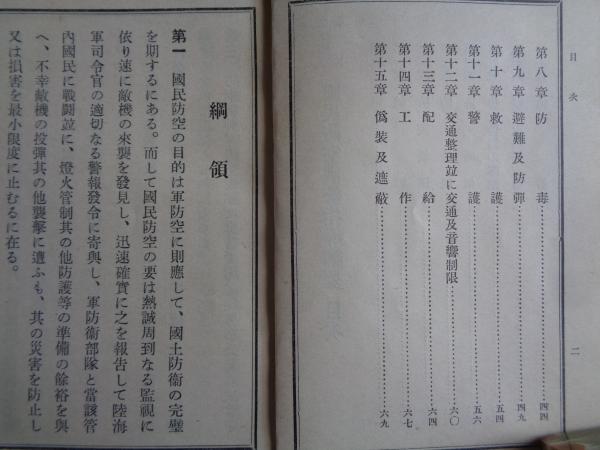 目次
二
第八章 防毒……………四四
第九章 避難及防彈……………四九
第十章 救護……………五四
第十一章 警護……………五六
第十二章 交通整理竝に交通及音響制限……………六〇
第十三章 配給……………六四
第十四章 工作……………六七
第十五章 僞装及遮蔽……………六九
綱領
第一 國民防空の目的は軍防空に則應して、國土防衞の完璧
を期するにある。而して國民防空の要は熱誠周到なる監視に
依り速に敵機の來襲を發見し、迅速確實に之を報告して陸海
軍司令官の適切なる警報發令に寄與し、軍防衞部隊と當該管
內國民に戰鬪竝に、燈火管制其の他防護等の準備の餘裕を與
へ、不幸敵機の投彈其の他襲擊に遭ふも、其の災害を防止し
又は損害を最小限度に止むるに在る。